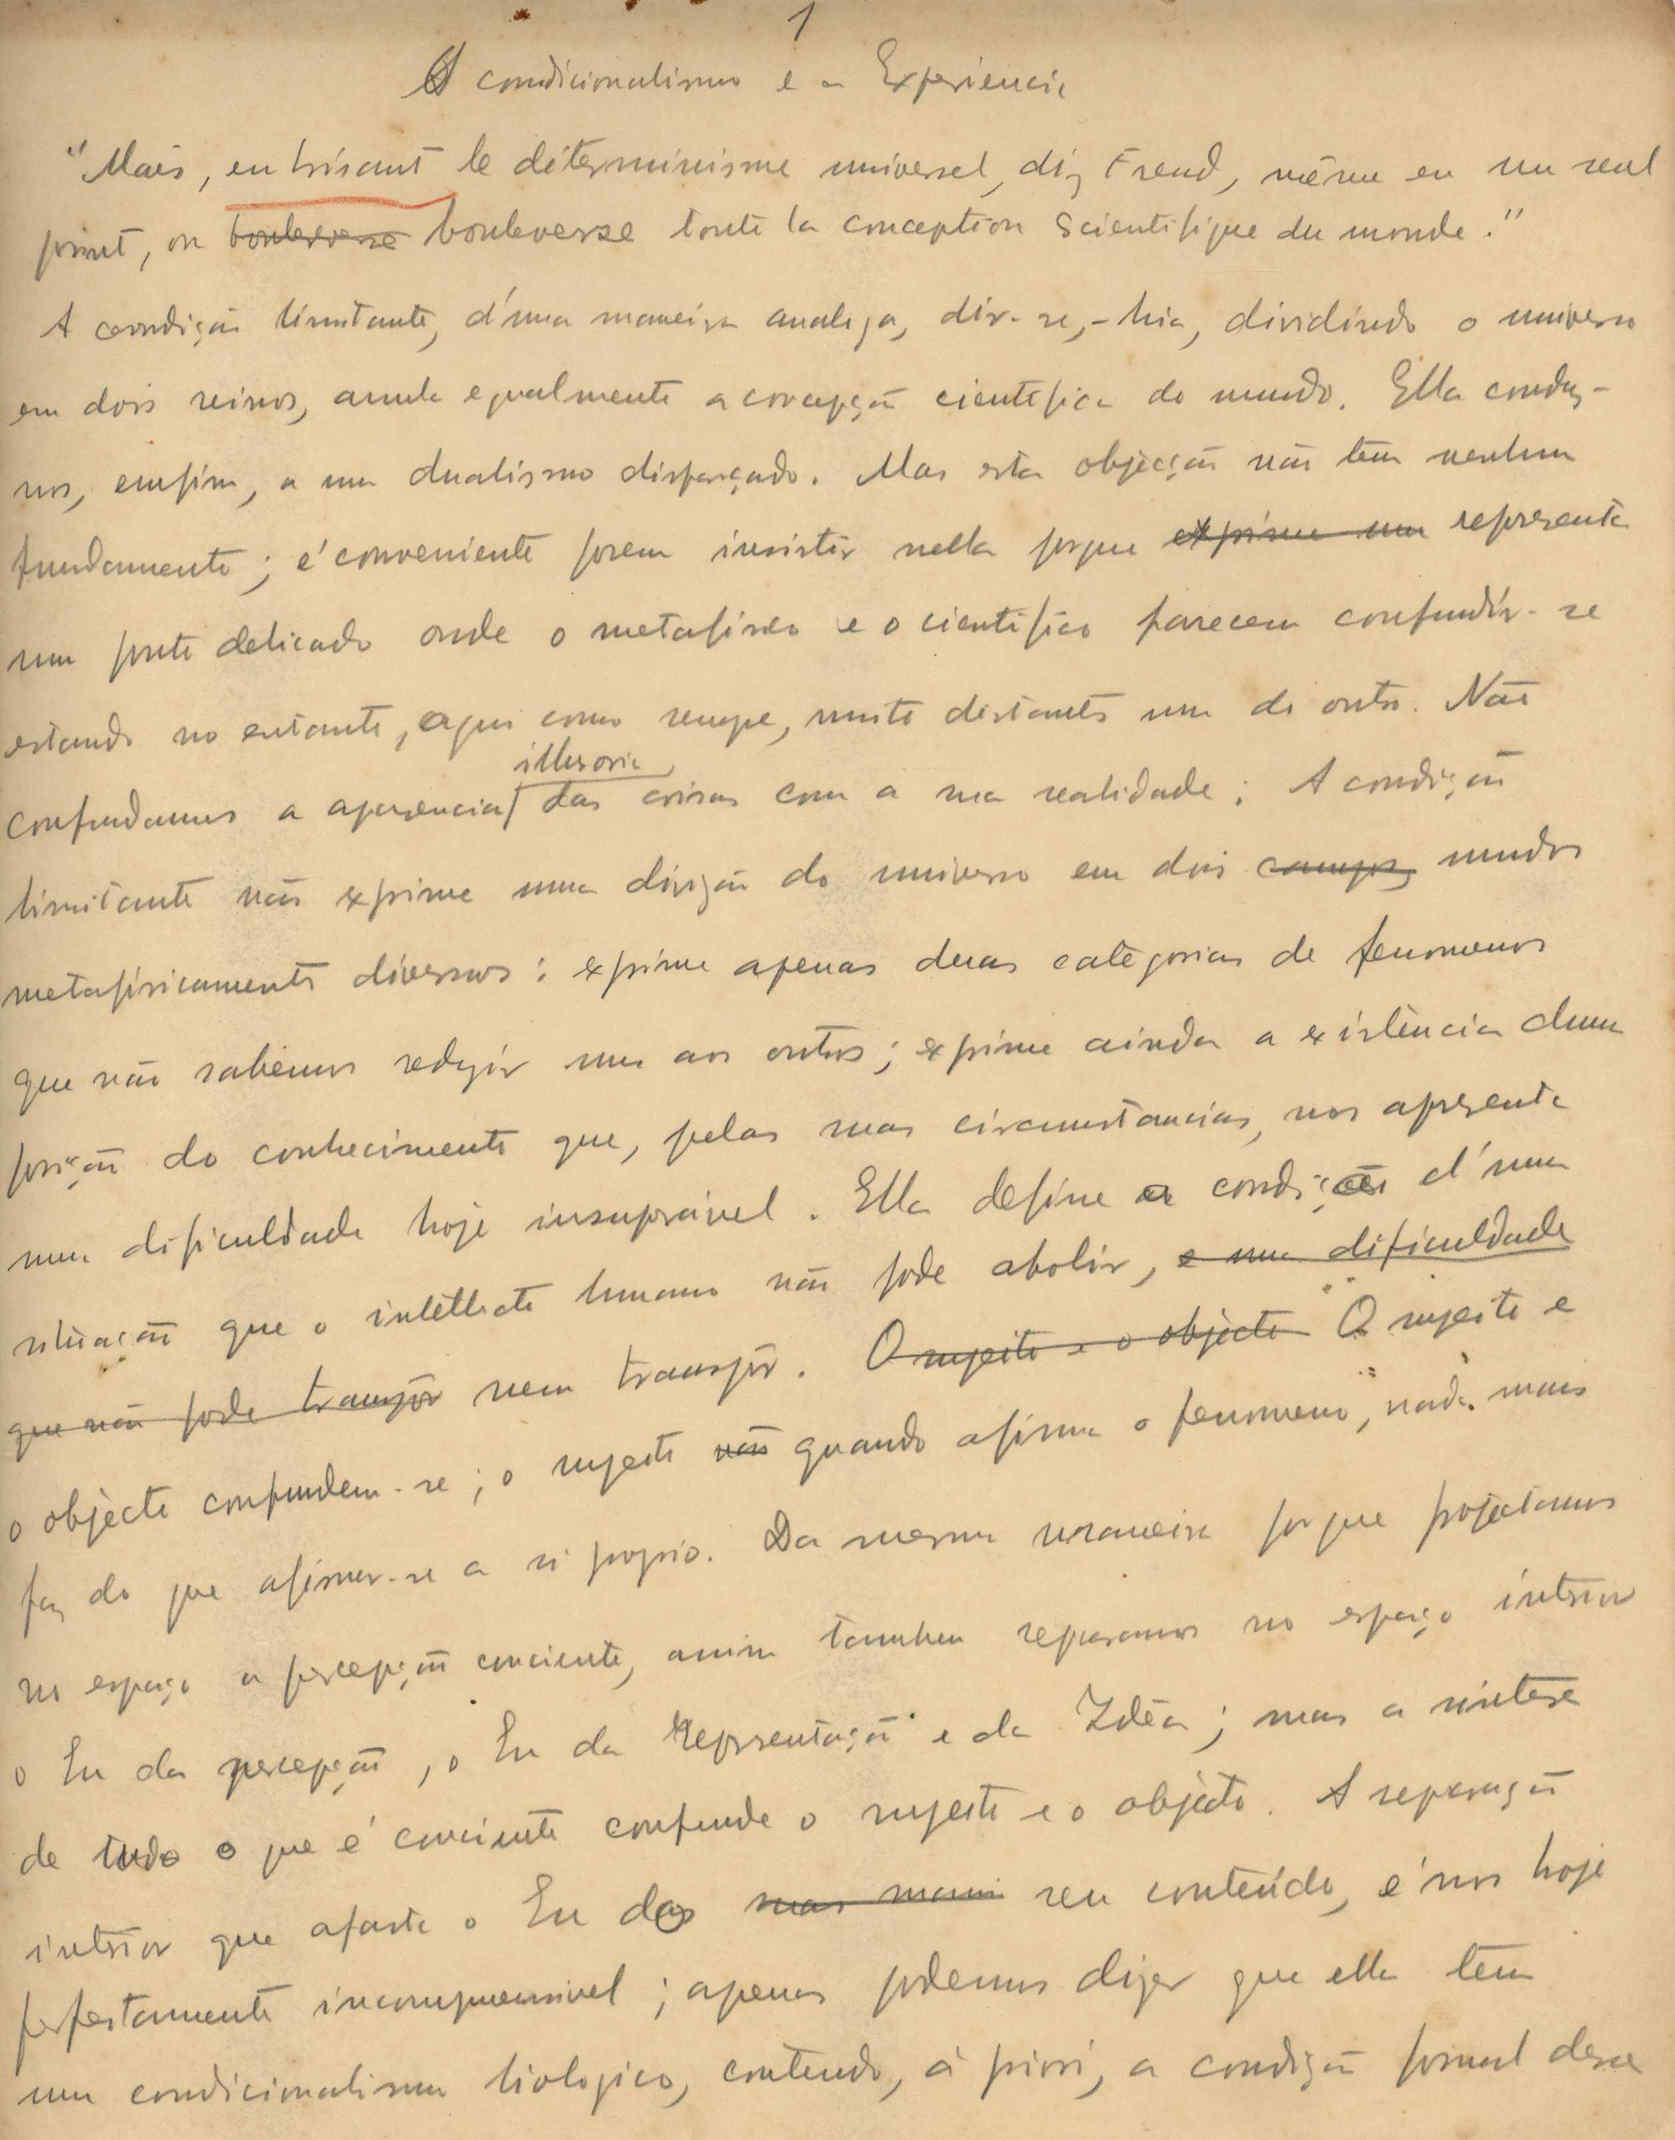 1
O condicionalismo e a Experiencia
"Mais, en brisant le déterminisme universel, diz Freud, même en un seul
point, on bouleverse bouleverse toute la conception scientifique du monde."
A condição limitante, d'uma maneira analoga, dir-se,-hia, dividindo o universo
em dois reinos, anula egualmente a concepção cientifica do mundo. Ella conduz-
nos, emfim, a um dualismo disfarçado. Mas esta objecção não tem nenhum
fundamento; é conveniente porem insistir nella porque exprime um representa
um ponto delicado onde o metafisico e o cientifico parecem confundir-se
estando no entanto, aqui como sempre, muito distantes um do outro. Não
illusoria
confundamos a aparencia das coisas com a sua realidade; A condição
limitante não exprime uma divisão do universo em dois campos mundos
metafisicamente diversos: exprime apenas duas categorias de fenomenos
que não sabemos reduzir uns aos outros; exprime ainda a existência duma
posição do conhecimento que, pelas suas circumstancias, nos apresenta
uma dificuldade hoje insuprável. Ella define a condição d'uma
situação que o intellecto humano não pode abolir, e uma dificuldade
que não pode transpôr nem transpôr. O sujeito e o objecto O sujeito e
o objecto confundem-se; o sujeito não quando afirma o fenomeno, nada mais
faz do que afirmar-se a si proprio. Da mesma maneira porque projectamos
no espaço a percepção conciente, assim tambem separamos no espaço interior
o Eu da percepção, o Eu da Representação e da Idêa; mas a sintese
de tudo o que é conciente confunde o sujeito e o objecto. A separação
interior que afasta o Eu do seu conteúdo, é nos hoje
perfeitamente incompreensivel; apenas podemos dizer que ella tem
um condicionalismo biologico, contendo, à priori, a condição formal desse